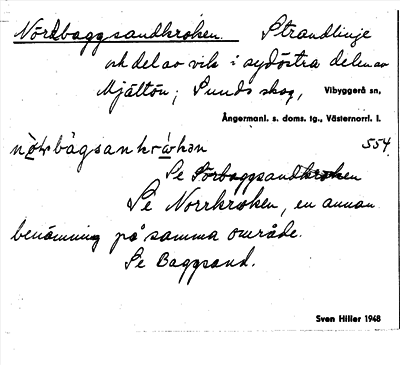 Nordbaggsandkroken. Strandlinje
och del av vik i sydöstra delen av
Mjältön; Sunds skog, Vibyggerå sn,
Ångermanl. s. doms. tg., Västernorrl. l.
554.
Se Sörbaggsandkroken
Se Norrkroken, en annan
benämning på samma område.
Se Baggsand.
Sven Hiller 1948